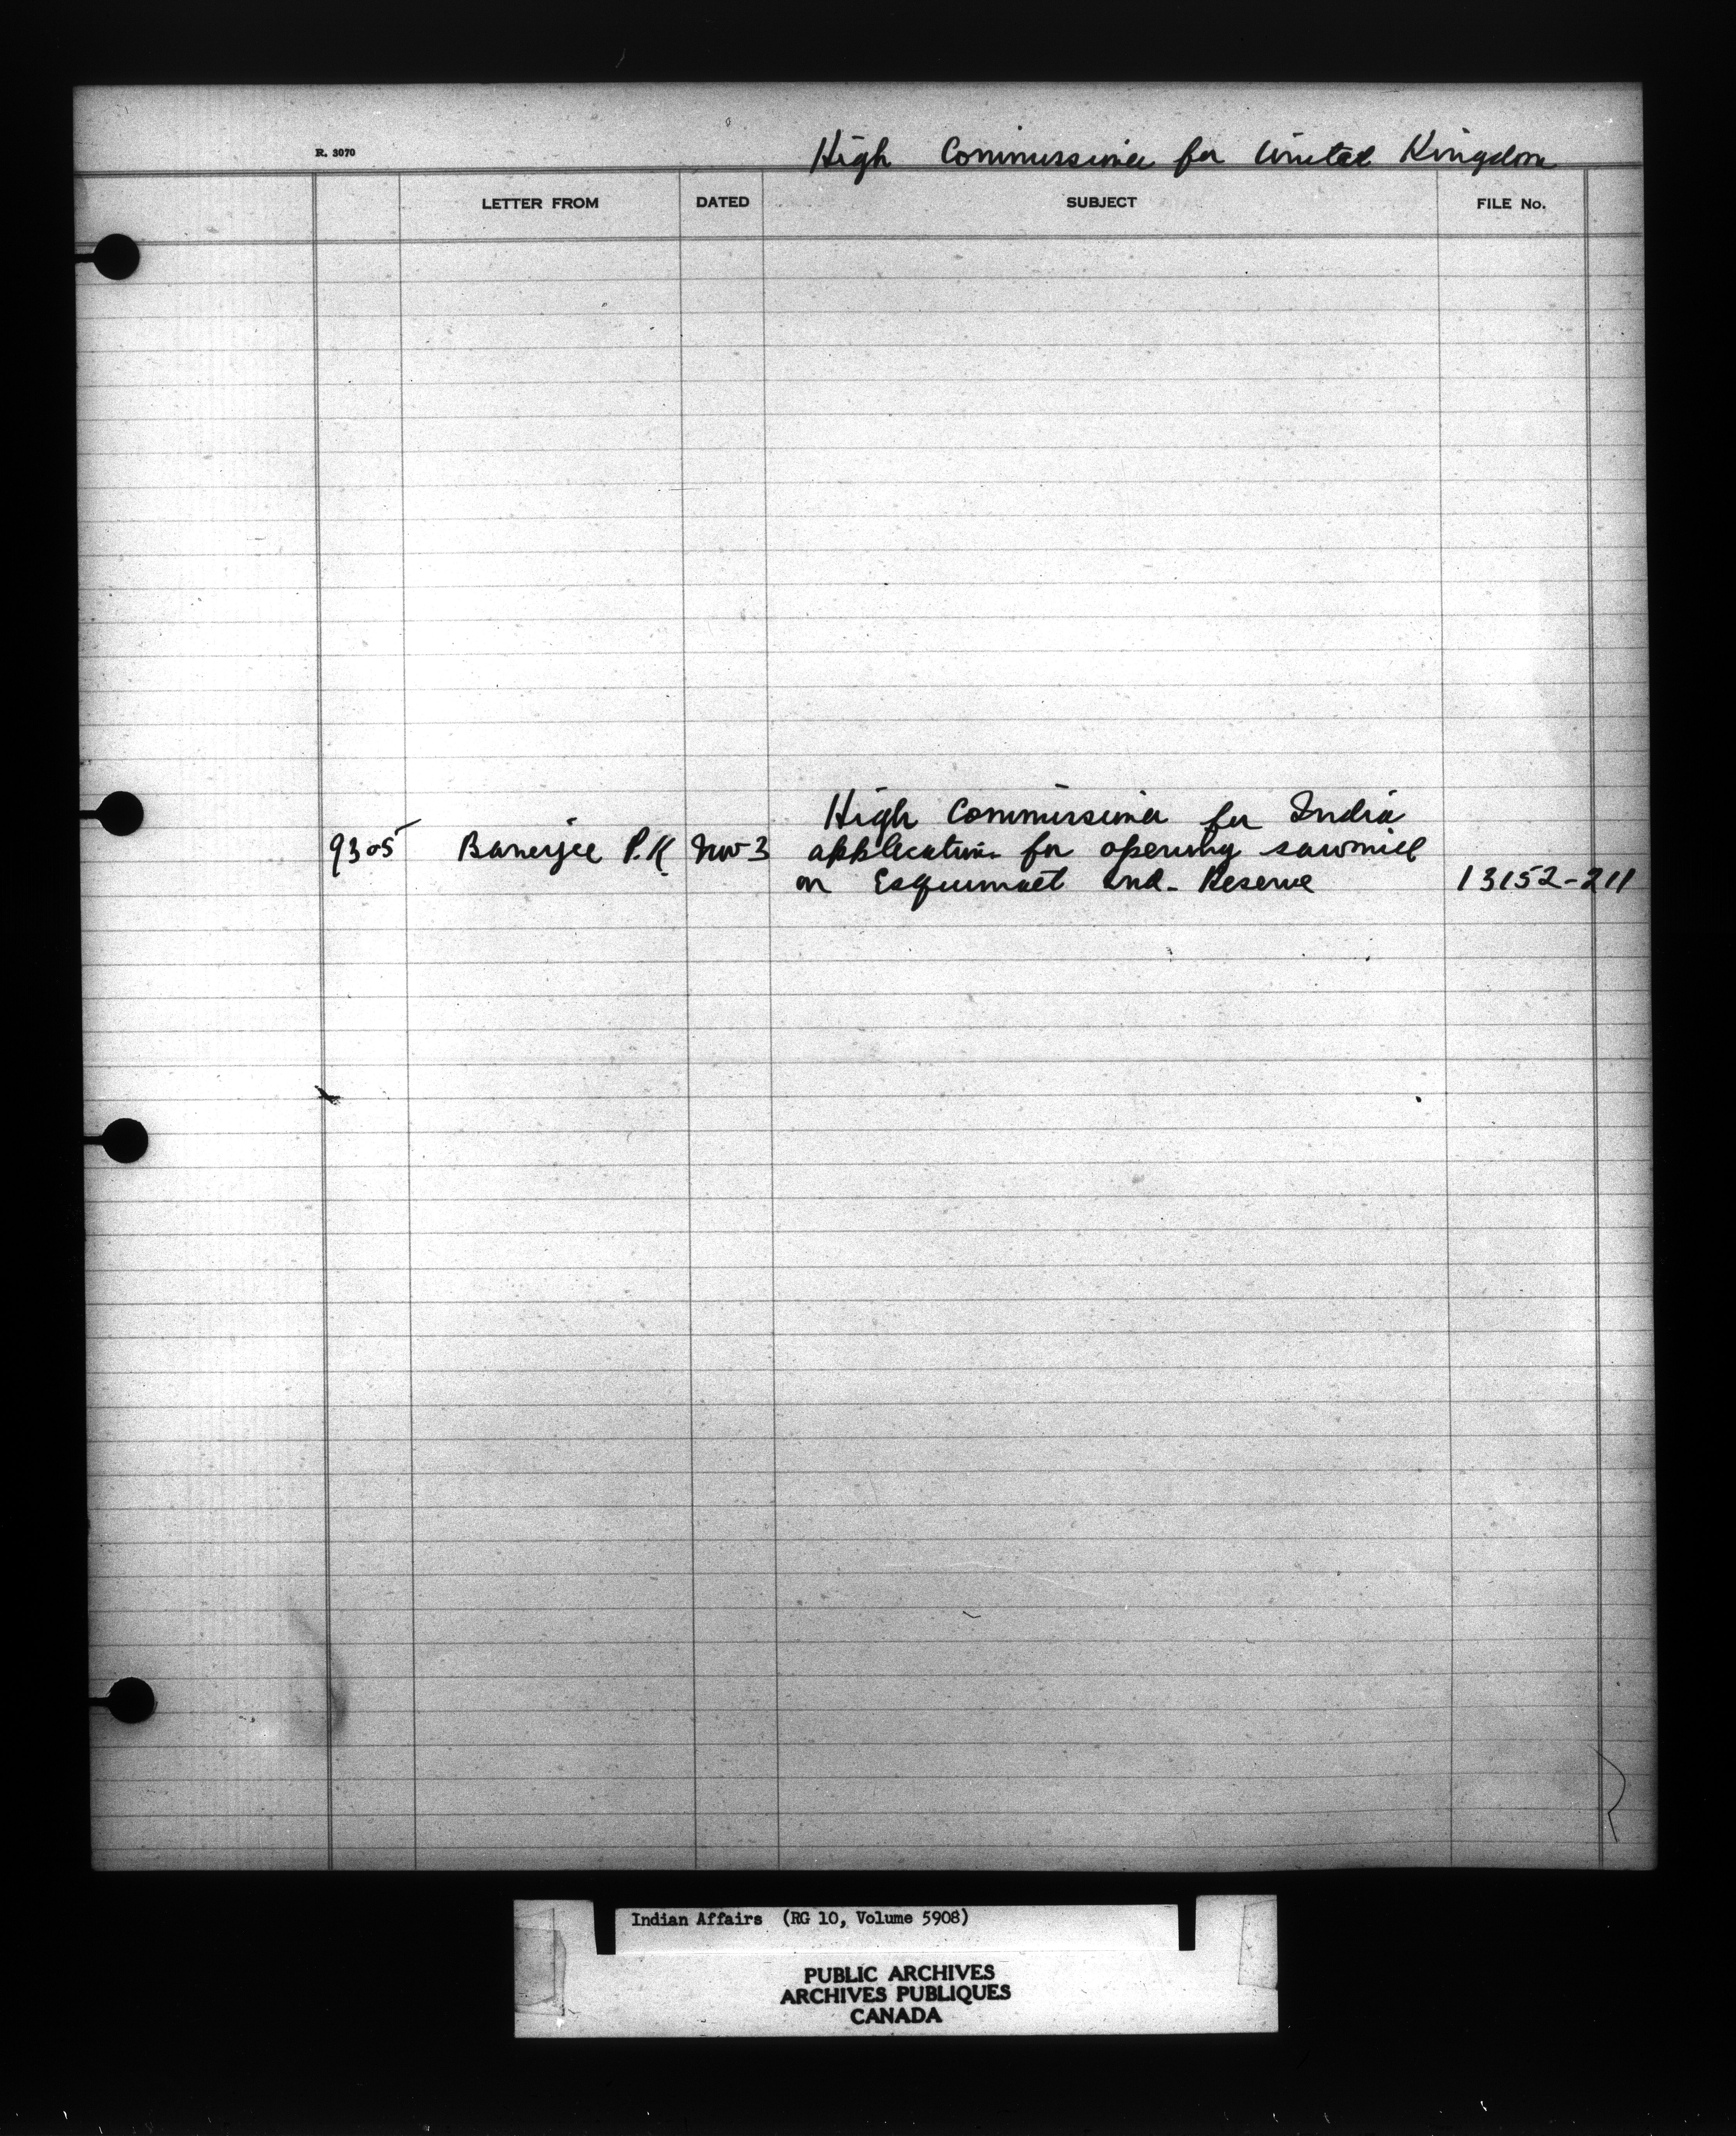 R. 3070
High Commissioner for United Kingdom
LETTER FROM DATED SUBJECT FILE No.
High Commissioner for India
9305 Banerjee P.K Nov 3 application for opening sawmill
on Esquimalt Ind. Reserve 13152-211
Indian Affairs (RG 10, Volume 5908)
PUBLIC ARCHIVES
ARCHIVES PUBLIQUES
CANADA